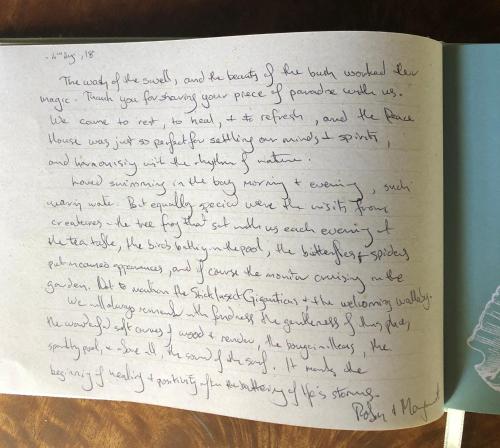 The wash of the swell, and the beauty of the bush worked their
magic. Thank you for sharing your piece of paradise with us.
We came to rest, to heal, + to refresh, and the Peace
House was just so perfect for settling our minds + spirits,
and harmonising with the rhythm of nature.
Loved swimming in the bay morning + evening, such
warm water. But equally special were the visits from
creatures - the tree frog that sat with us each evening at
the tea table, the birds bathing in the pool, the butterflies + spiders
put in cameo appearances, and of course the monitor cruising in the
garden. Not to mention the Stick Insect Giganticus + the welcoming wallaby.
We will always remember with fondness the gentleness of this place,
the wonderful soft curves of wood + render, the bougainvilleas, the
sparkling pool, + above all, the sound of the surf. It marks the
beginning of healing + positivity after the battering of life's storms.
+ Margaret